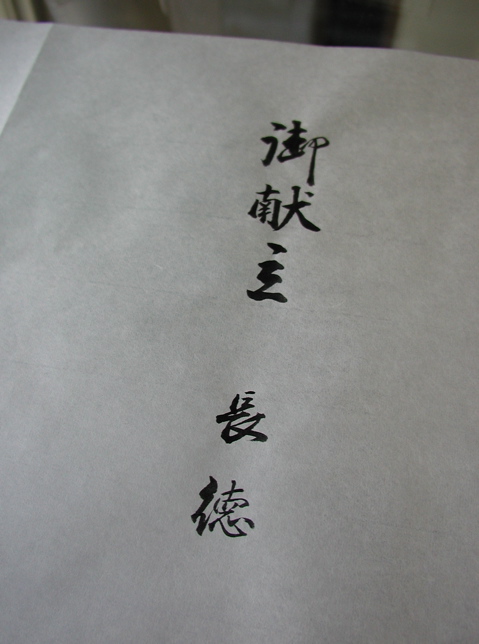 御献立
長徳